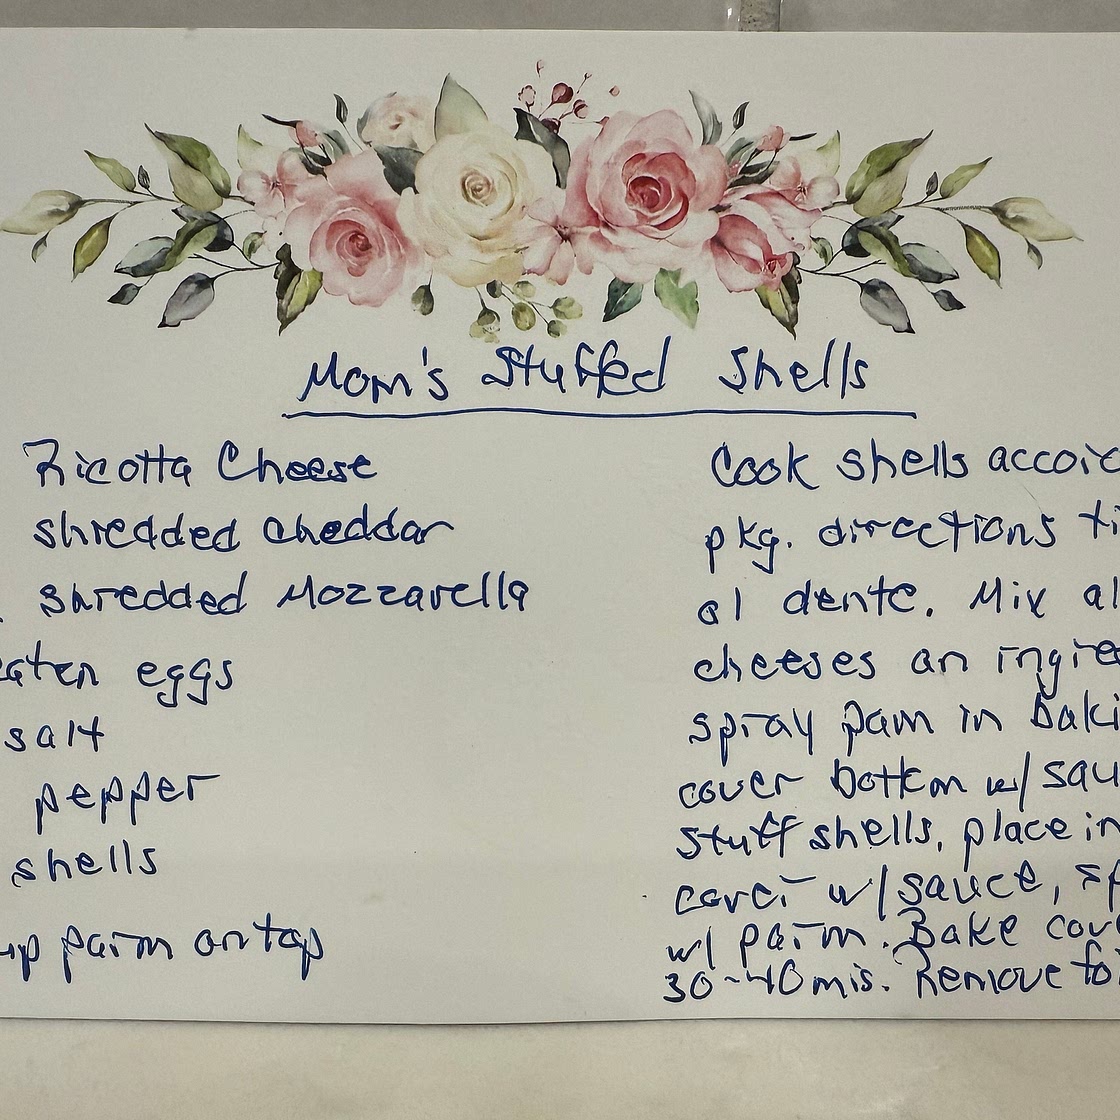 Mom's Stuffed Shells
Ricotta Cheese
shredded cheddar
shredded Mozzarella
eaten eggs
salt
pepper
shells
up parm on top
Cook shells accord
pkg. directions ti
al dente. Mix al
cheeses an ingre
spray pam in baki
cover bottom w/ sau
stuff shells, place in
cover w/ sauce, sp
w/ parm. Bake cov
30-40 mis. Remove fo